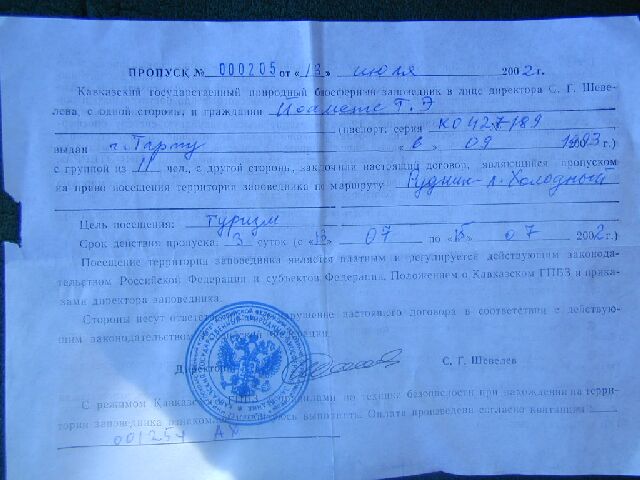 ПРОПУСК № 000205 от «13» июля 2002 г.
Кавказский государственный природный биосферный заповедник в лице директора С. Г. Шеве-
лева, с одной стороны, и гражданин Т. Э
(паспорт: серия КО427789
выдан г. Тарту « 6 » 09 1993 г.)
с группой из 11 чел., с другой стороны, заключили настоящий договор, являющийся пропуском
на право посещения территории заповедника по маршруту Рудник - л. Холодный
Цель посещения: Туризм
Срок действия пропуска 3 суток (с «13» 07 по «15» 07 2002 г.)
Посещение территории заповедника является платным и регулируется действующим законода-
тельством Российской Федерации и субъектов Федерации, Положением о Кавказском ГПБЗ и прика-
зами директора заповедника.
Стороны несут нарушение настоящего договора в соответствии с действую-
щим законодательством
Директор С. Г. Шевелев
С режимом ГПБЗ правилами по технике безопасности при нахождении на терри-
тории заповедника выполнять. Оплата произведена согласно квитанции
001254